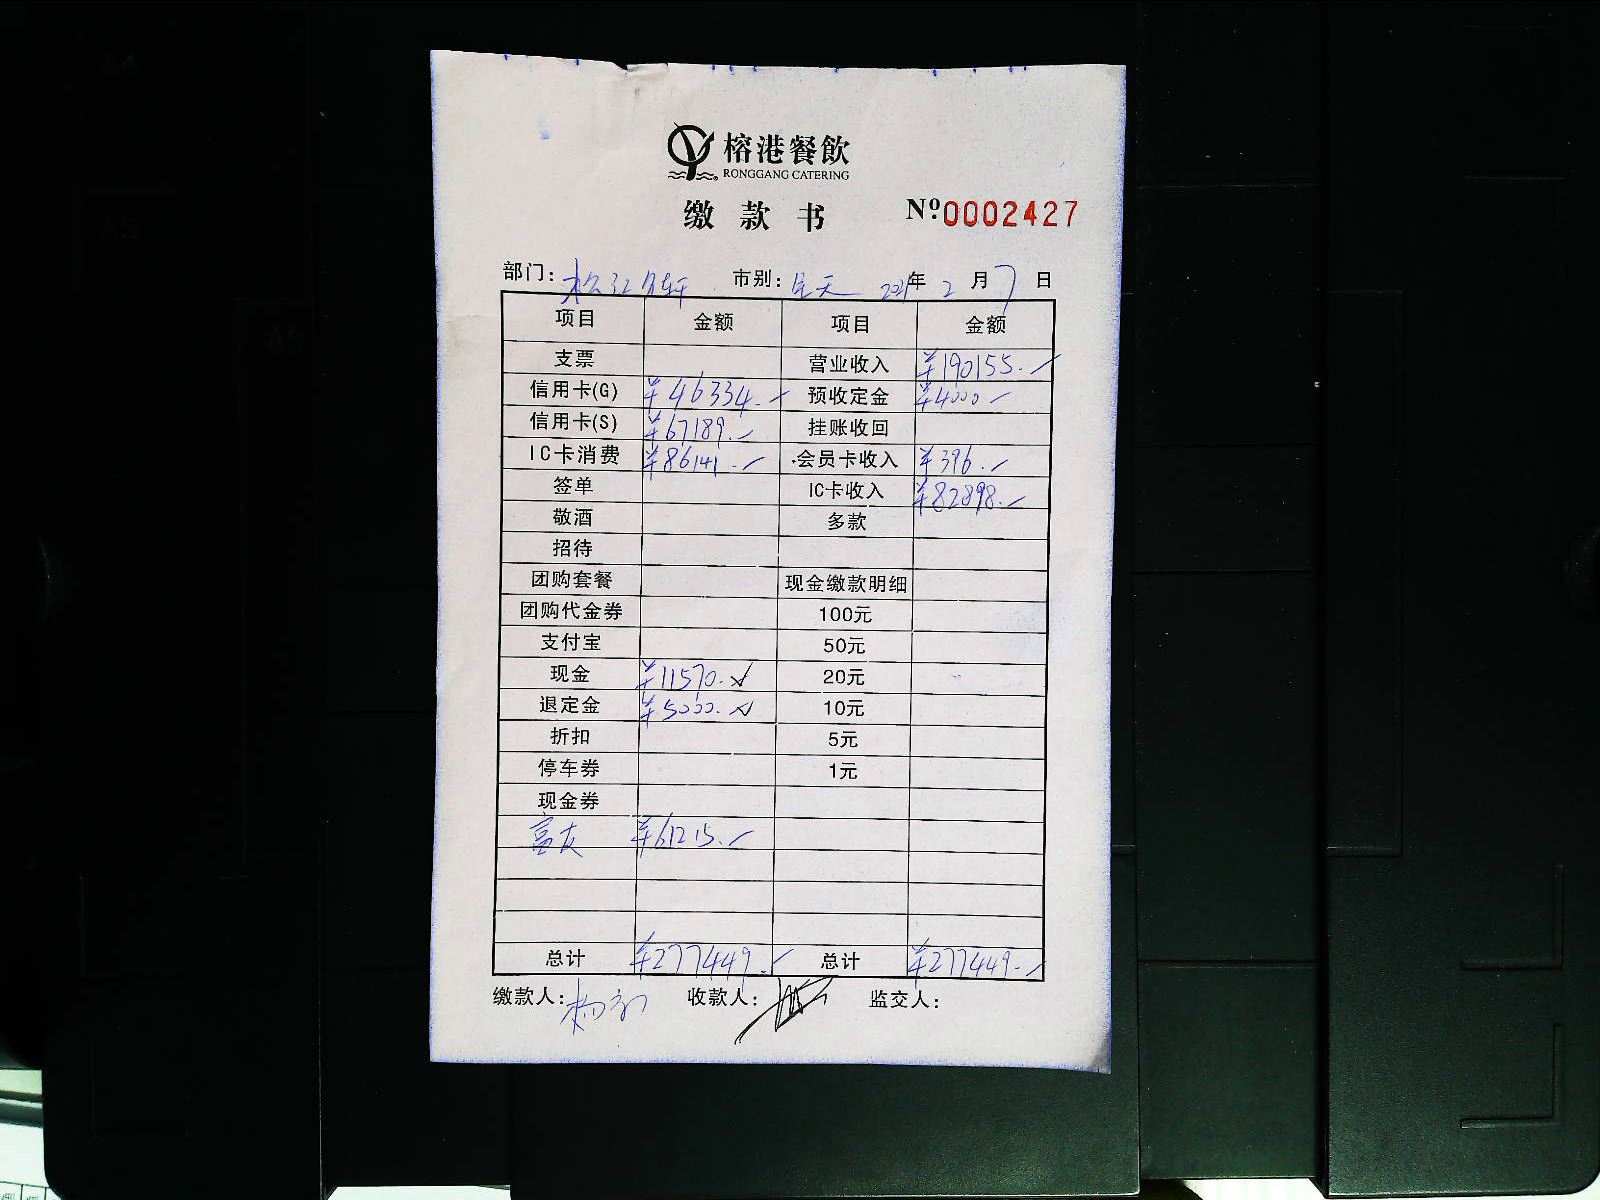 榕港餐飲
RONGGANG CATERING
缴款书 Nº0002427
部门: 松江轩 市别: 全天 2021年2月7日
项目 金额 项目 金额
支票 营业收入 ¥190155.
信用卡(G) ¥46334. 预收定金 ¥4000
信用卡(S) ¥67189. 挂账收回
IC卡消费 ¥86141. 会员卡收入 ¥396.
签单 IC卡收入 ¥82898.
敬酒 多款
招待
团购套餐 现金缴款明细
团购代金券 100元
支付宝 50元
现金 ¥11570. 20元
退定金 ¥5000. 10元
折扣 5元
停车券 1元
现金券
富友 ¥61215.
总计 ¥277449. 总计 ¥277449.
缴款人: 收款人: 监交人: